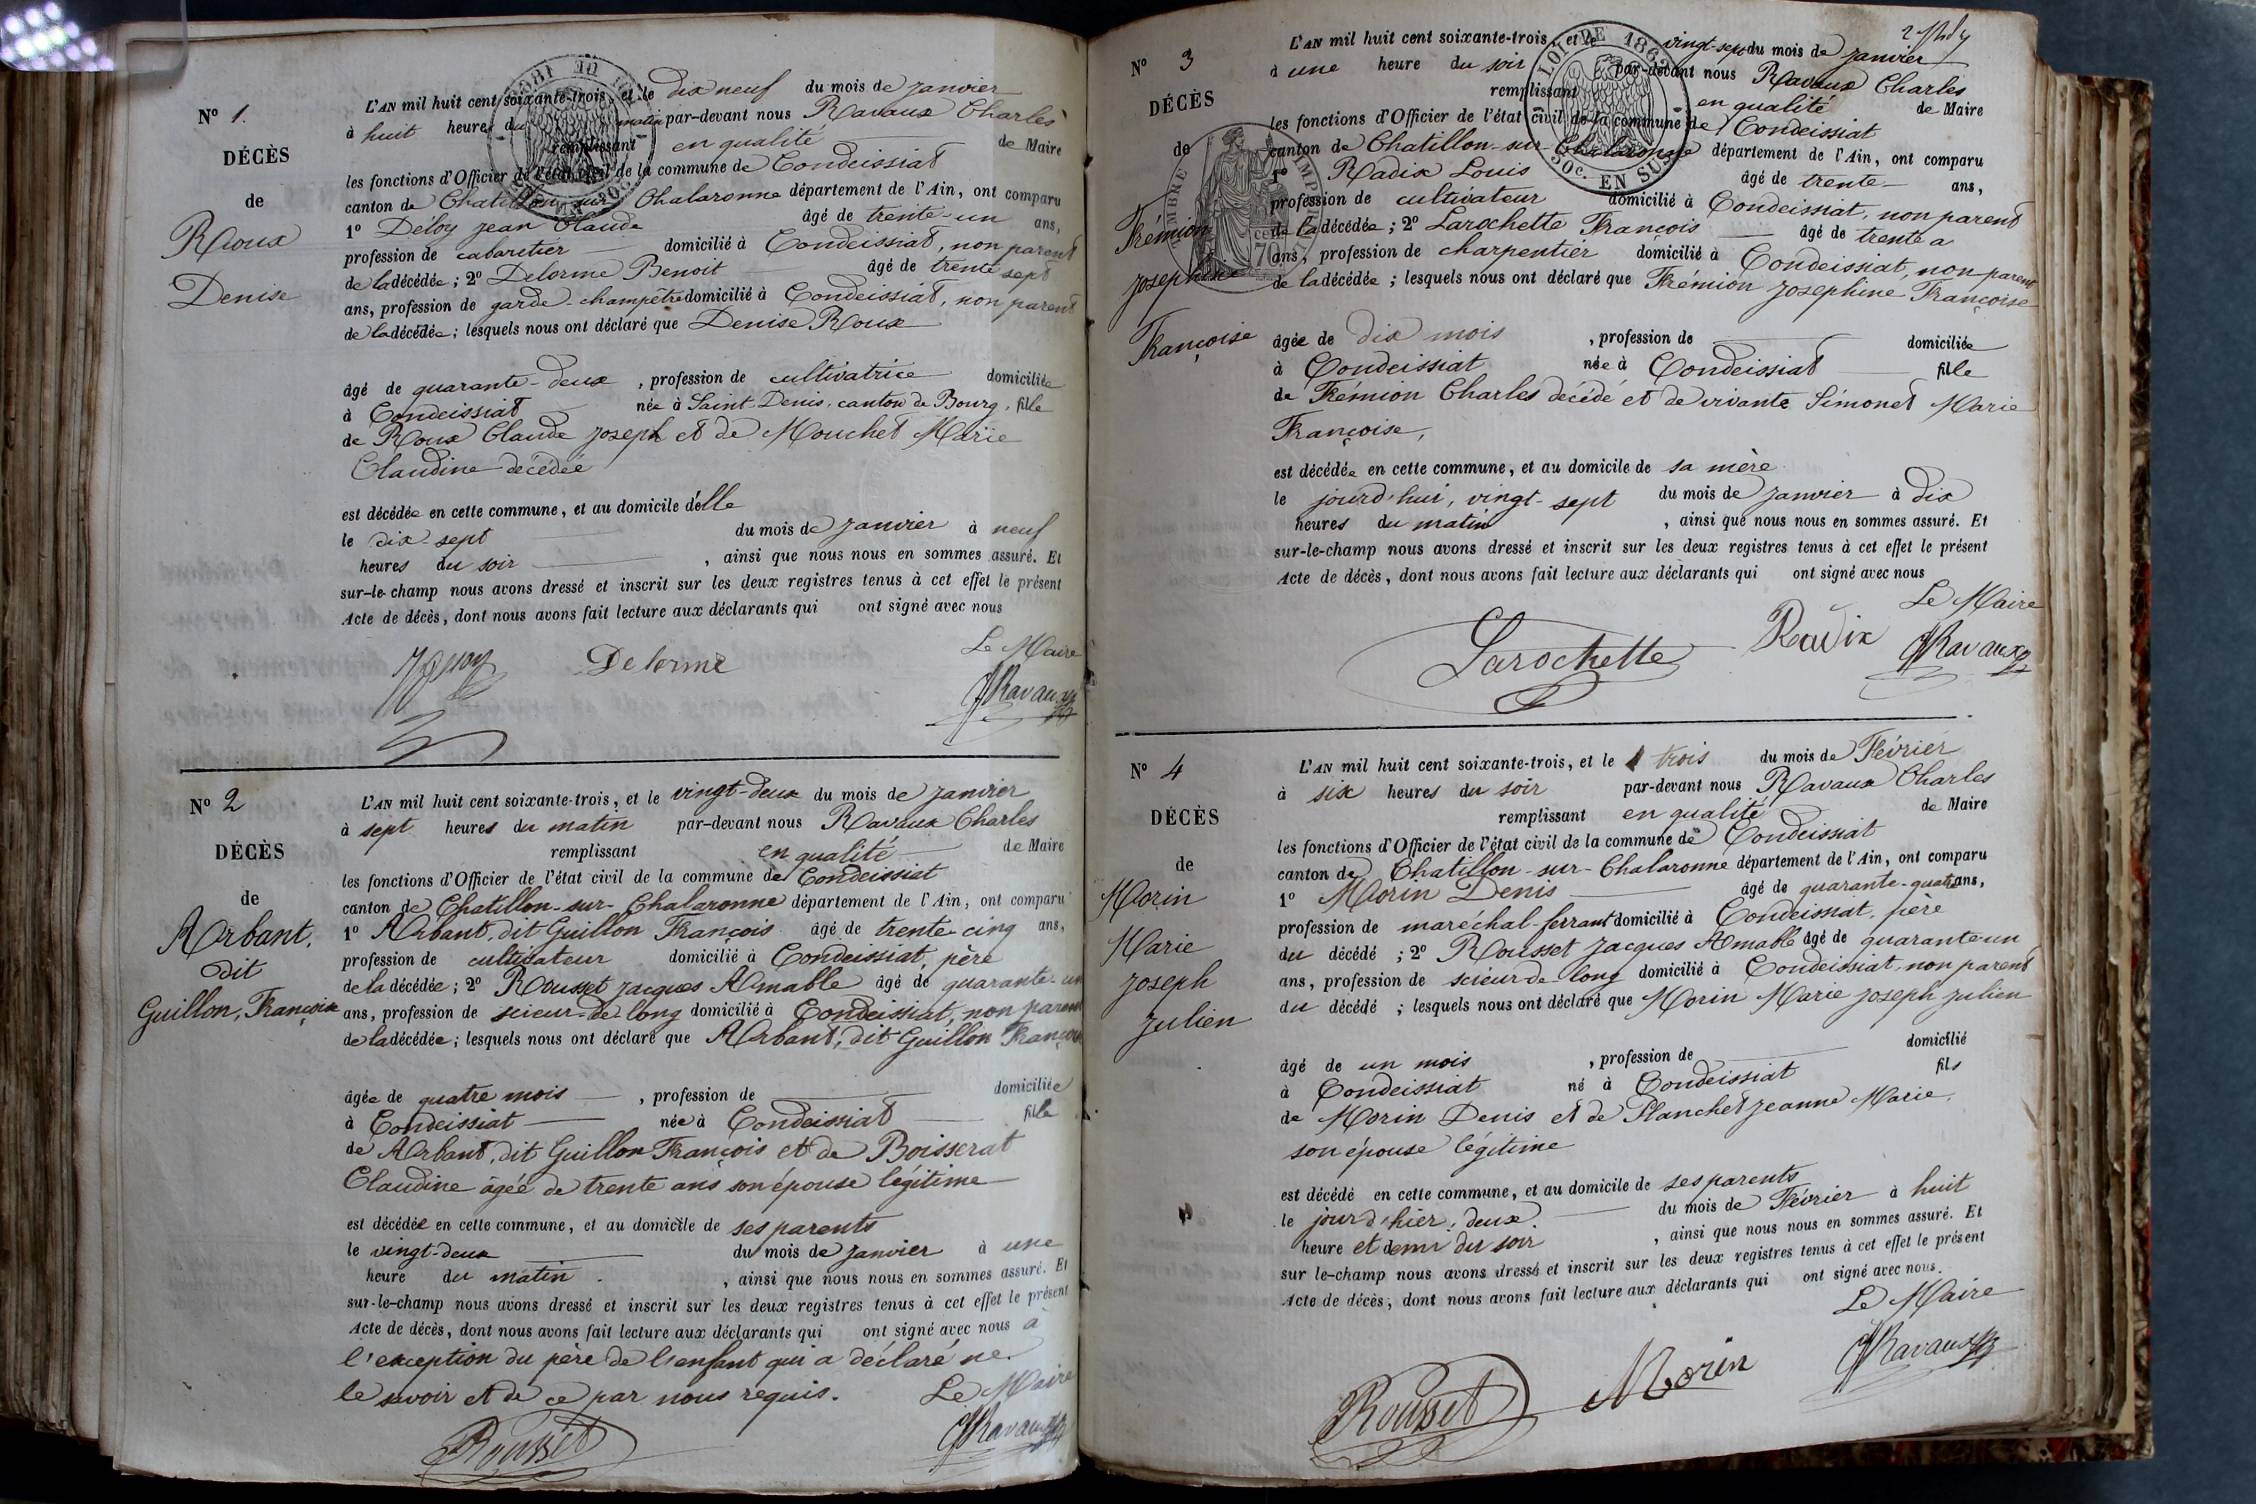 Nº 1.
DÉCÈS
de
Roux
Denise
L'AN mil huit cent soixante-trois, et le dix neuf du mois de janvier
à huit heures du matin par-devant nous Ravaux Charles
remplissant en qualité de Maire
les fonctions d'Officier de l'état civil de la commune de Condeissiat
canton de Chatillon-sur-Chalaronne département de l'Ain, ont comparu
1º Déloy jean Claude âgé de trente-un ans,
profession de cabaretier domicilié à Condeissiat, non parent
de la décédée ; 2º Delorme Benoit âgé de trente sept
ans, profession de garde-champêtre domicilié à Condeissiat, non parent
de la décédée ; lesquels nous ont déclaré que Denise Roux
âgé de quarante-deux , profession de cultivatrice domiciliée
à Condeissiat née à Saint-Denis, canton de Bourg, fille
de Roux Claude joseph et de Mouchet Marie
Claudine décédée
est décédée en cette commune, et au domicile d'elle
le dix-sept du mois de janvier à neuf
heures du soir , ainsi que nous nous en sommes assuré. Et
sur-le-champ nous avons dressé et inscrit sur les deux registres tenus à cet effet le présent
Acte de décès, dont nous avons fait lecture aux déclarants qui ont signé avec nous
Le Maire
Delorme
Ravaux
Nº 2
DÉCÈS
de
Arbant,
dit
Guillon, Françoise
L'AN mil huit cent soixante-trois, et le vingt-deux du mois de janvier
à sept heures du matin par-devant nous Ravaux Charles
remplissant en qualité de Maire
les fonctions d'Officier de l'état civil de la commune de Condeissiat
canton de Chatillon-sur-Chalaronne département de l'Ain, ont comparu
1º Arbant, dit Guillon François âgé de trente-cinq ans,
profession de cultivateur domicilié à Condeissiat, père
de la décédée ; 2º Rousset jacques Amable âgé de quarante-un
ans, profession de scieur-de long domicilié à Condeissiat, non parent
de la décédée ; lesquels nous ont déclaré que Arbant, dit Guillon Françoise
âgée de quatre mois , profession de domiciliée
à Condeissiat née à Condeissiat fille
de Arbant, dit Guillon François et de Boisserat
Claudine âgée de trente ans son épouse légitime
est décédée en cette commune, et au domicile de ses parents
le vingt-deux du mois de janvier à une
heure du matin , ainsi que nous nous en sommes assuré. Et
sur-le-champ nous avons dressé et inscrit sur les deux registres tenus à cet effet le présent
Acte de décès, dont nous avons fait lecture aux déclarants qui ont signé avec nous à
l'exception du père de l'enfant qui a déclaré ne
le savoir et de ce par nous requis.
Le Maire
Rousset
Ravaux
Nº 3
DÉCÈS
de
Frémion
josephine
Françoise
L'AN mil huit cent soixante-trois, et le vingt-sept du mois de janvier
à une heure du soir par-devant nous Ravaux Charles
remplissant en qualité de Maire
les fonctions d'Officier de l'état civil de la commune de Condeissiat
canton de Chatillon-sur-Chalaronne département de l'Ain, ont comparu
1º Radix Louis âgé de trente ans,
profession de cultivateur domicilié à Condeissiat, non parent
de la décédée ; 2º Larochette François âgé de trente a
ans, profession de charpentier domicilié à Condeissiat, non parent
de la décédée ; lesquels nous ont déclaré que Frémion josephine Françoise
âgée de dix mois , profession de domiciliée
à Condeissiat née à Condeissiat fille
de Frémion Charles décédé et de vivante Simonet Marie
Françoise,
est décédée en cette commune, et au domicile de sa mère
le jourd'hui, vingt-sept du mois de janvier à dix
heures du matin , ainsi que nous nous en sommes assuré. Et
sur-le-champ nous avons dressé et inscrit sur les deux registres tenus à cet effet le présent
Acte de décès, dont nous avons fait lecture aux déclarants qui ont signé avec nous
Le Maire
Larochette Radix Ravaux
Nº 4
DÉCÈS
de
Morin
Marie
joseph
julien
L'AN mil huit cent soixante-trois, et le trois du mois de Février
à six heures du soir par-devant nous Ravaux Charles
remplissant en qualité de Maire
les fonctions d'Officier de l'état civil de la commune de Condeissiat
canton de Chatillon-sur-Chalaronne département de l'Ain, ont comparu
1º Morin Denis âgé de quarante-quatre ans,
profession de maréchal-ferrant domicilié à Condeissiat, père
du décédé ; 2º Rousset jacques Amable âgé de quarante un
ans, profession de scieur-de-long domicilié à Condeissiat, non parent
du décédé ; lesquels nous ont déclaré que Morin Marie joseph julien
âgé de un mois , profession de domicilié
à Condeissiat né à Condeissiat fils
de Morin Denis et de Planchet jeanne Marie,
son épouse légitime
est décédé en cette commune, et au domicile de ses parents
le jour d'hier, deux. du mois de Février à huit
heure et demi du soir , ainsi que nous nous en sommes assuré. Et
sur le-champ nous avons dressé et inscrit sur les deux registres tenus à cet effet le présent
Acte de décès, dont nous avons fait lecture aux déclarants qui ont signé avec nous.
Le Maire
Rousset Morin Ravaux